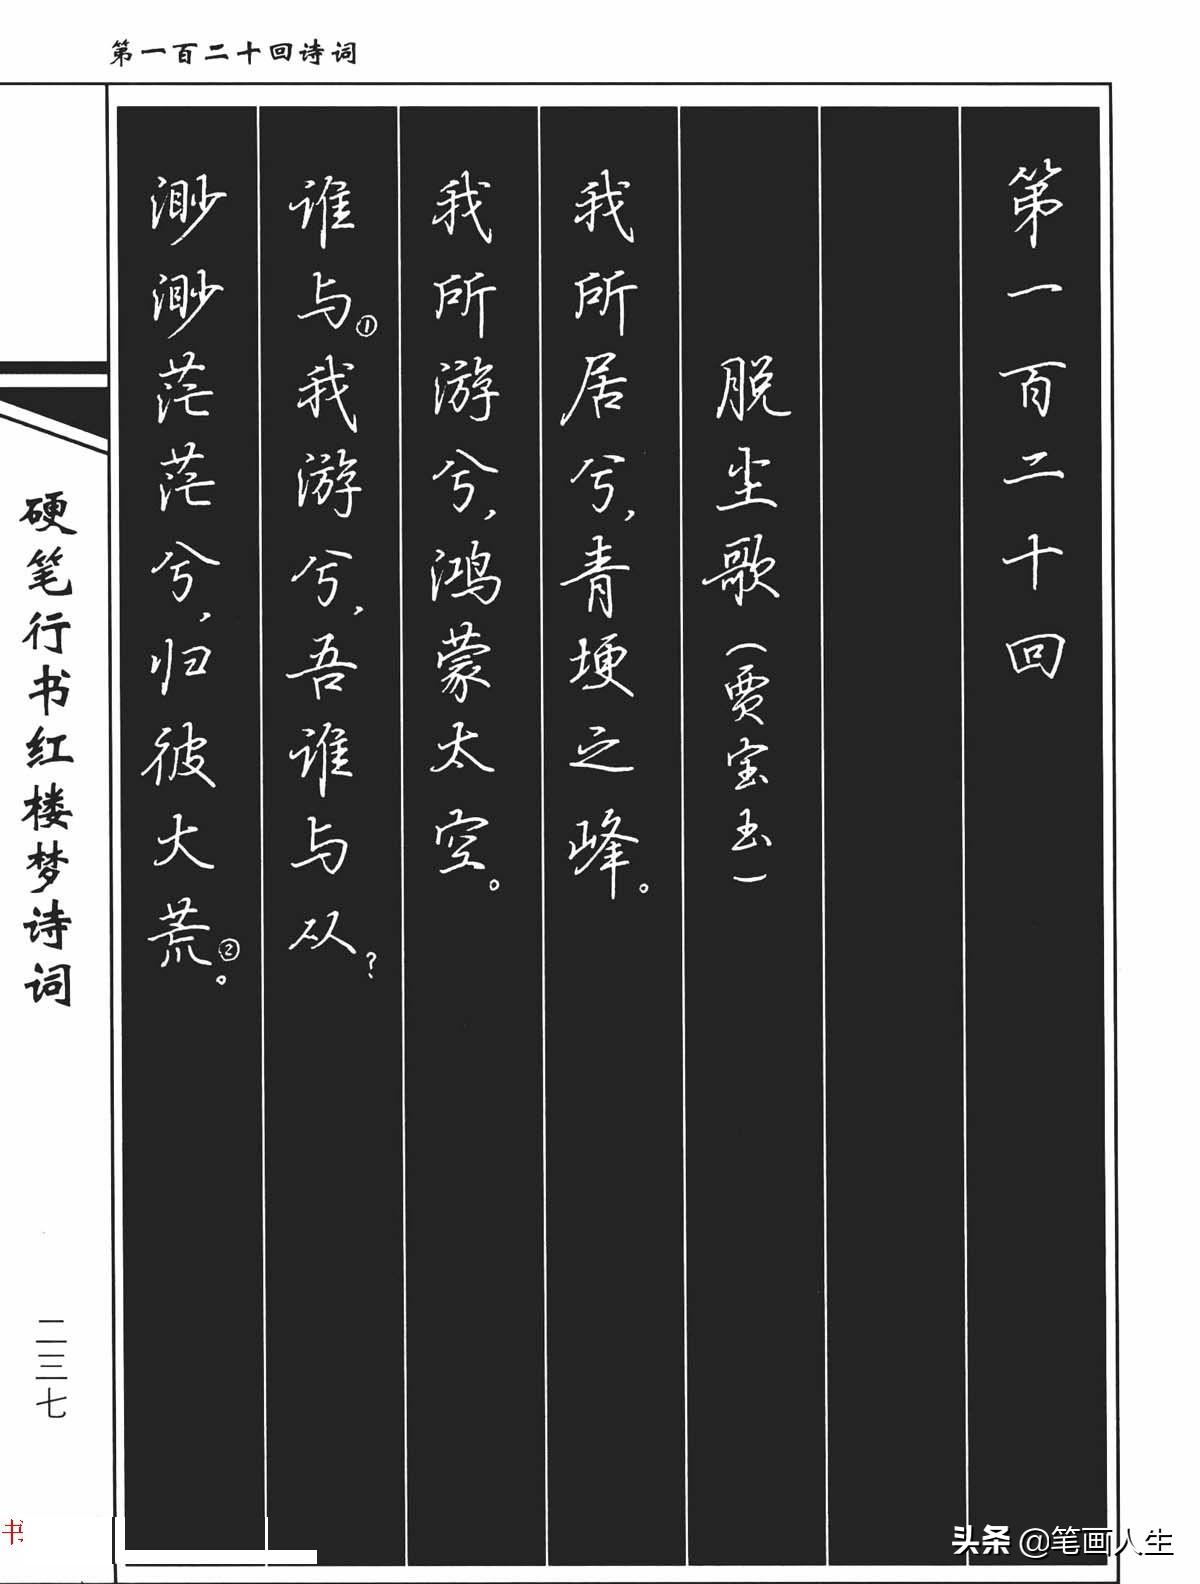 第一百二十回诗词
第一百二十回
脱尘歌（贾宝玉）
我所居兮，青埂之峰。
我所游兮，鸿蒙太空。
谁与①我游兮，吾谁与从？
渺渺茫茫兮，归彼大荒②。
硬笔行书红楼梦诗词
二三七
书
头条 @笔画人生